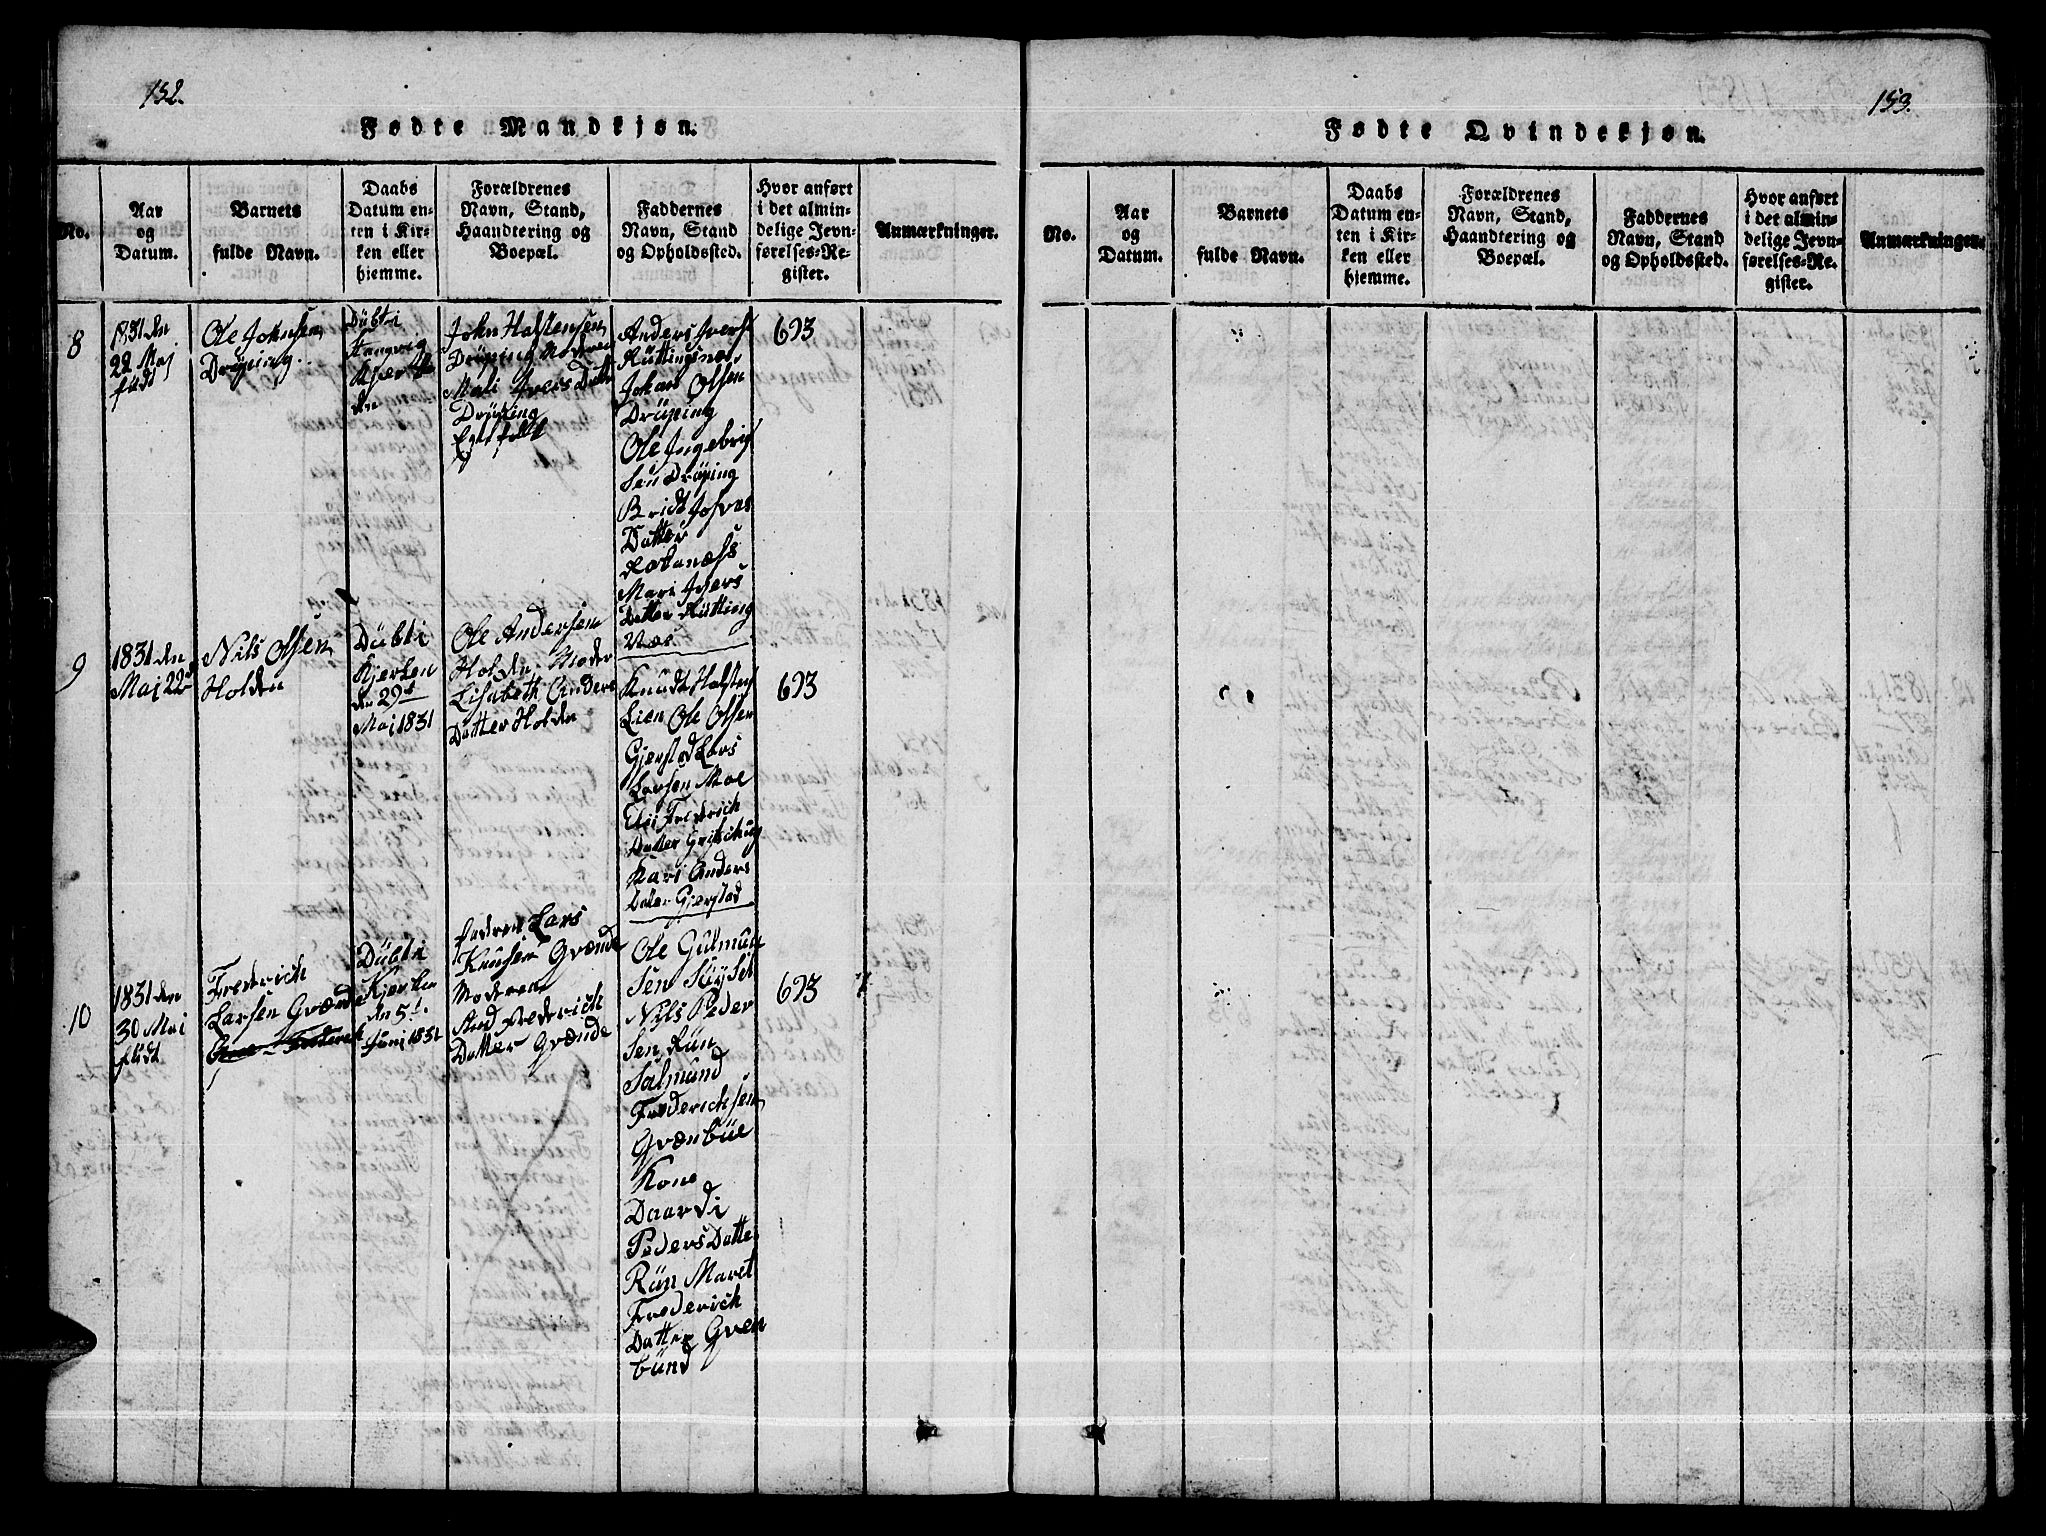 152.
Fødte Mandkjøn.
No.
Aar
og
Datum.
Barnets
fulde Navn.
Daabs
Datum en-
ten i Kir-
ken eller
hjemme.
Forældrenes
Navn, Stand,
Haandtering og
Boepæl.
Faddernes
Navn, Stand
og Opholdssted.
Hvor anført
i det almin-
delige Jevn-
førelses-Re-
gister.
Anmærkninger.
8
1831 den
22 Maj
füdt
Ole Johnsen
Dröping.
Dübti
den
John Halstensen
Dröping Moderen
Mali Ivers Datter
Dröping
Anders Ivers
Johan Olsen
Dröping
Ole Ingebrig
sen Dröping
Datter
Mari Ivers
Datter Rütting
Næs
693
9
1831 den
Maj 22
Nils Olsen
Holden
Dübti
Kjerken
den 29
Maj 1831
Ole Andersen
Holden Moder
Lisabeth Anders
Datter Holden
Knudt Halsten
Lien Ole Olsen
Gjerstad Lars
Larsen Moe
Frederich
Datter
Kari Anders
Dater Gjerstad
693
10
1831 den
30 Mai
füdt
Frederich
Larsen Grænde
Dübti
Kjerken
den 5
Juni 1831
Faderen Lars
Knusen Grænde
Moderen
And Frederich
Datter Grænde
Ole Gulmun
sen
Nyls Peder
sen Rün
Salmund
Frederichsen
Grænbüe
Kone
Daardi
Peders Datter
Rün Maret
Frederich
Datter Gren
bünd
693
153.
Fødte Qvindekjøn.
No.
Aar
og
Datum.
Barnets
fulde Navn.
Daabs
Datum en-
ten i Kir-
ken eller
hjemme.
Forældrenes
Navn, Stand,
Haandtering og
Boepæl.
Faddernes
Navn, Stand
og Opholdssted.
Hvor anført
i det almin-
delige Jevn-
førelses-Re-
gister.
Anmærkninger.